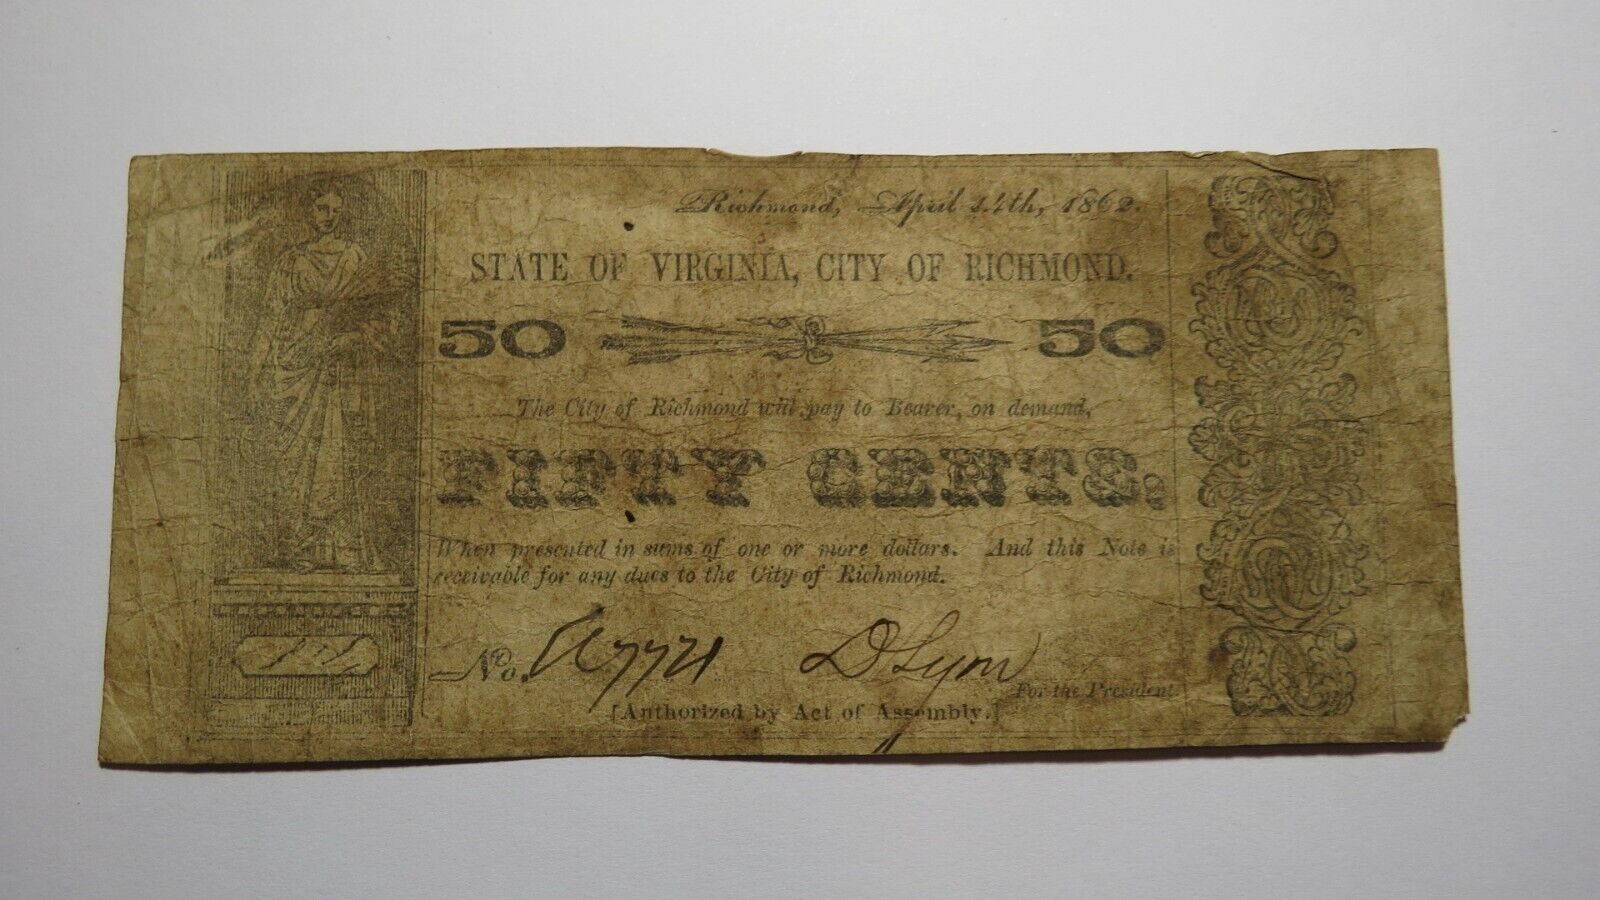 Richmond, April 14th, 1862.
STATE OF VIRGINIA, CITY OF RICHMOND.
50 50
The City of Richmond will pay to Bearer, on demand,
FIFTY CENTS,
When presented in sums of one or more dollars. And this Note is
receivable for any dues to the City of Richmond.
No. 7721
For the President
[Authorized by Act of Assembly.]